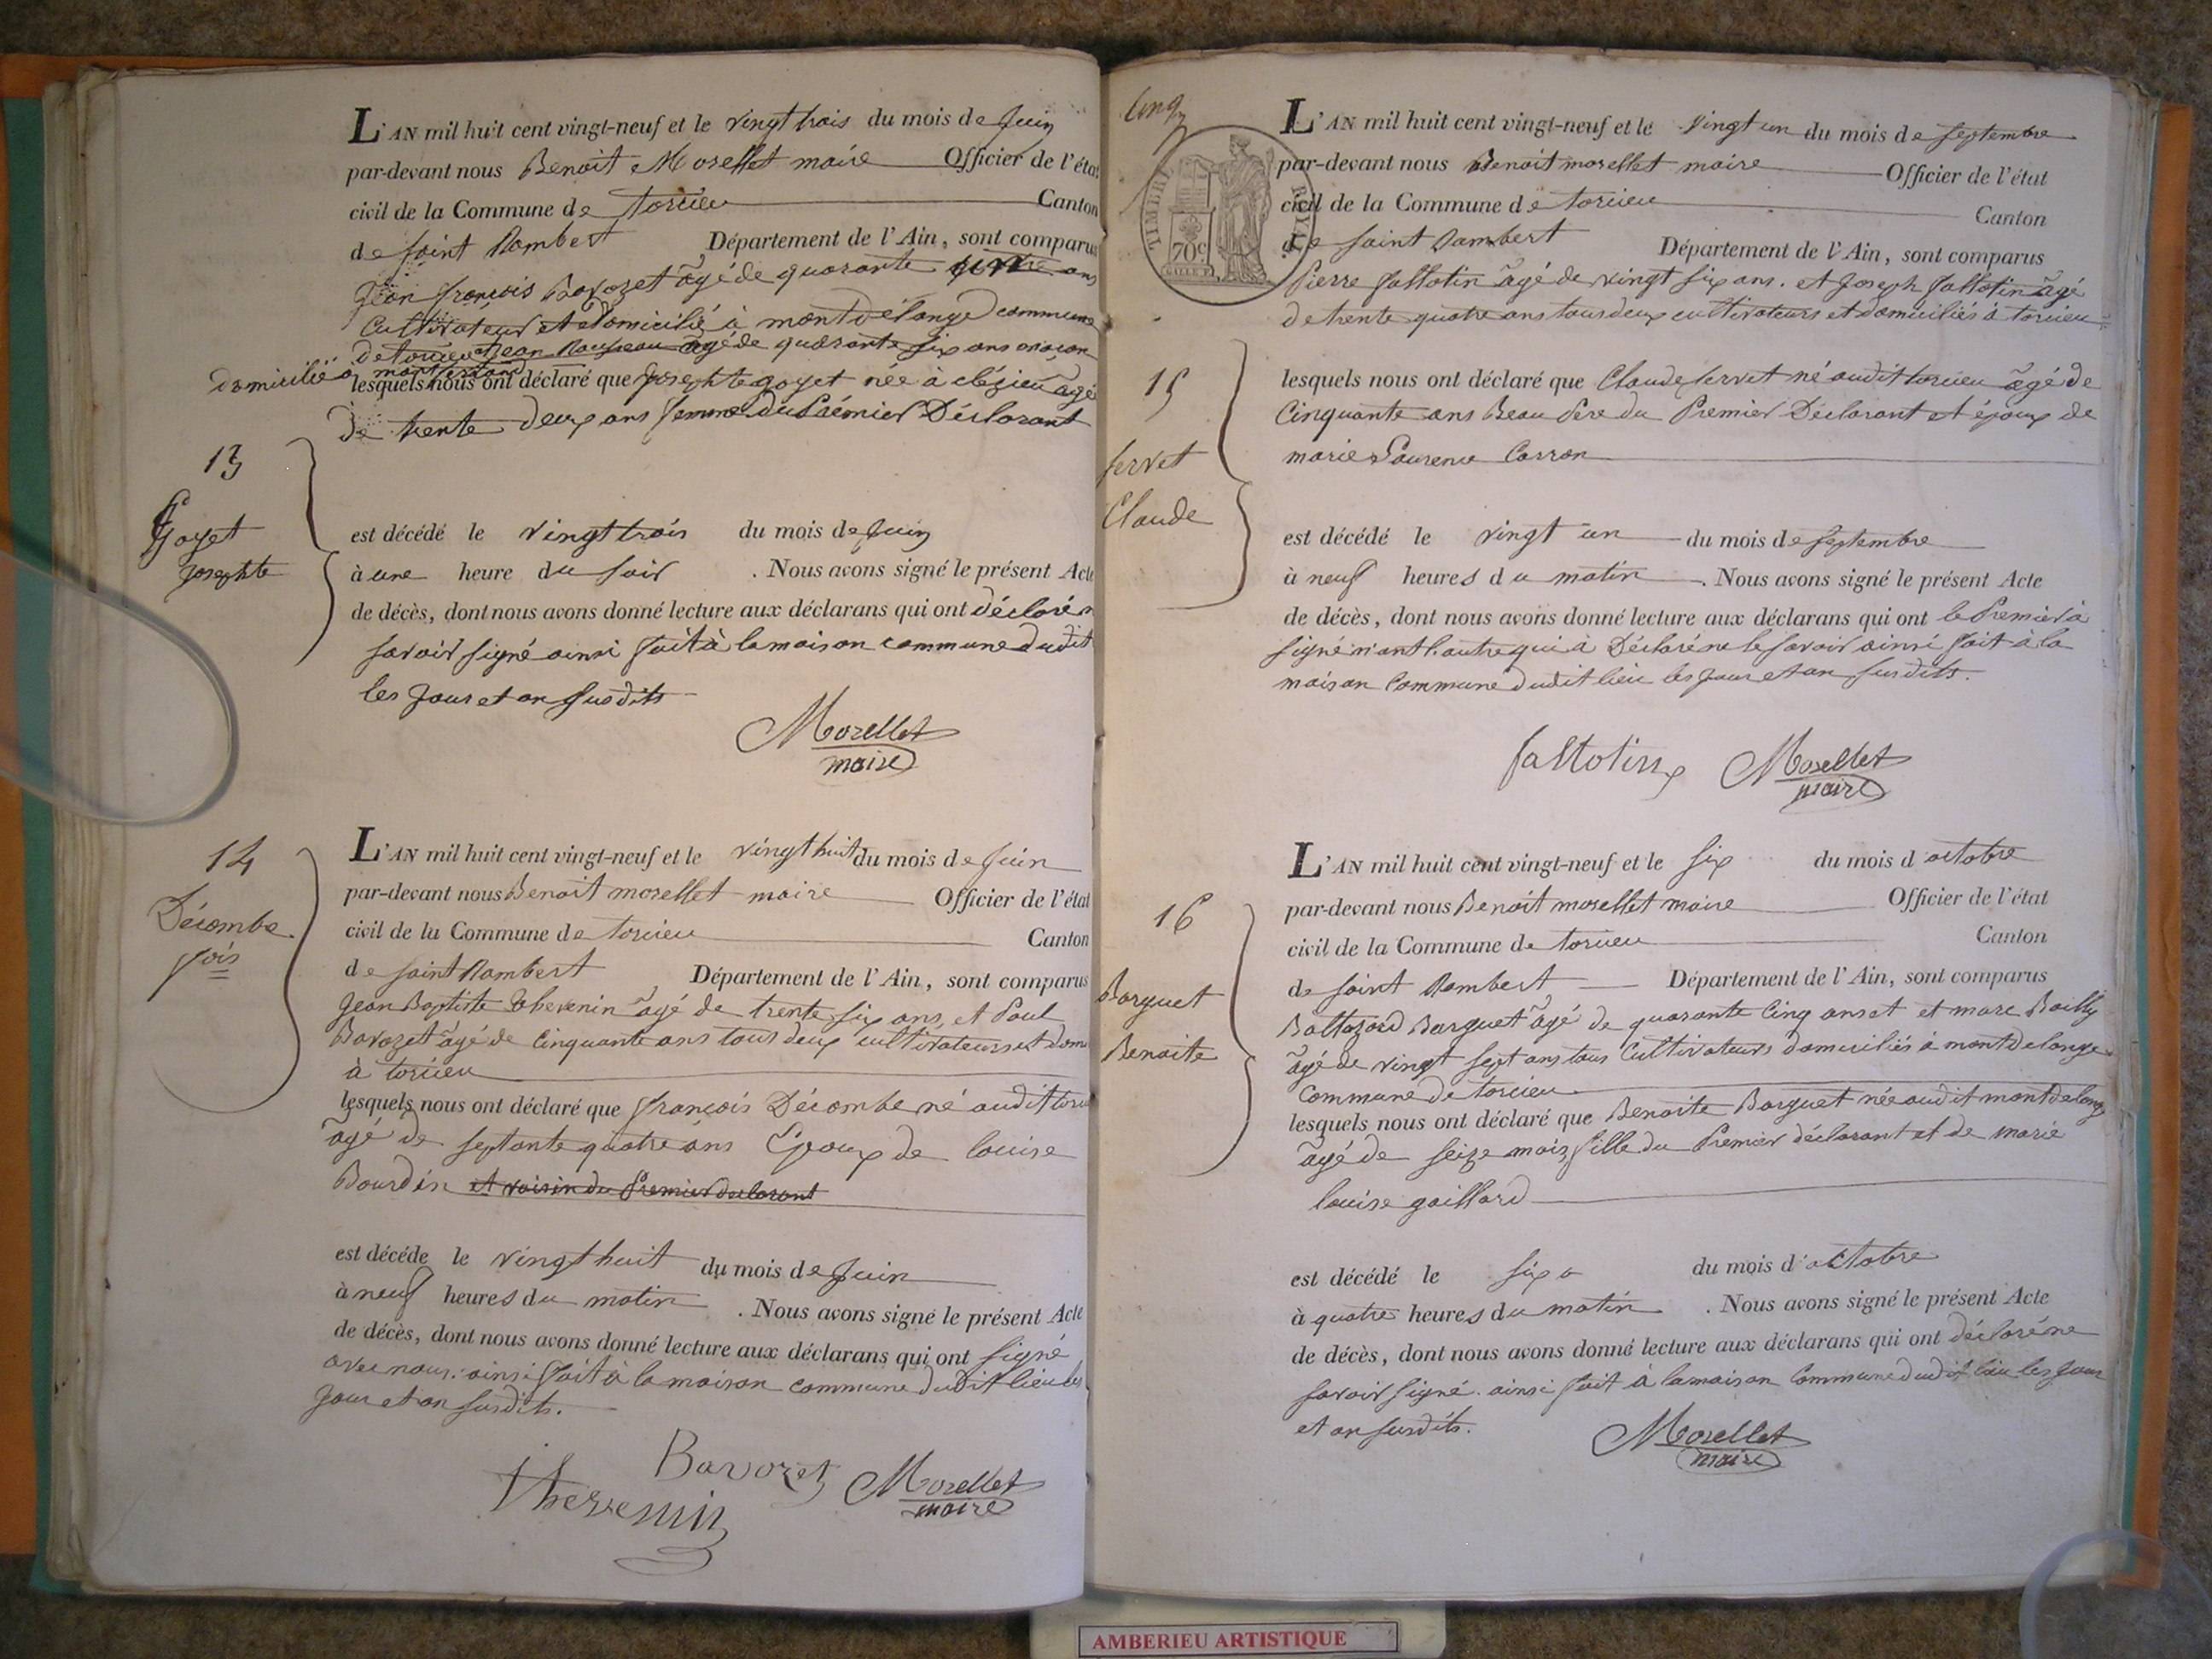 L'AN mil huit cent vingt-neuf et le vingt trois du mois de Juin
par-devant nous Benoit Morellet maire Officier de l'état
civil de la Commune de torcieu Canton
de Saint Rambert Département de l'Ain, sont comparus
Jean françois Bavozet âgé de quarante ans
Cultivateur et domicilié à montdélange commune
de torcieu et Jean Rousseau âgé de quarante six ans maçon
domicilié à
lesquels nous ont déclaré que Josephte goyet née à clézieu âgé
de trente deux ans femme du Prémier Déclarant
13
Goyet
Josephte
est décédé le vingt trois du mois de Juin
à une heure du soir . Nous avons signé le présent Acte
de décès, dont nous avons donné lecture aux déclarans qui ont déclaré n
savoir signé ainsi fait à la maison commune dudit
les Jour et an susdits
Morellet
maire
14
Décombe
fois
L'AN mil huit cent vingt-neuf et le vingt huit du mois de Juin
par-devant nous Benoit morellet maire Officier de l'état
civil de la Commune de torcieu Canton
de saint Rambert Département de l'Ain, sont comparus
Jean Baptiste thevenin âgé de trente six ans et Paul
Bavozet âgé de Cinquante ans tous deux cultivateurs et domi
à torcieu
lesquels nous ont déclaré que françois Décombe né audit torci
âgé de septante quatre ans Epoux de louise
Bourdin et voisin du Premier declarant
est décéde le vingt huit du mois de Juin
à neuf heures du matin . Nous avons signé le présent Acte
de décès, dont nous avons donné lecture aux déclarans qui ont signé
avec nous. ainsi fait à la maison commune dudit lieu les
Jour et an susdits.
Bavozet
thevenin
Morellet
maire
TIMBRE ROYAL
70c
L'AN mil huit cent vingt-neuf et le vingt un du mois de septembre
par-devant nous Benoit morellet maire Officier de l'état
civil de la Commune de torcieu Canton
de saint Rambert Département de l'Ain, sont comparus
Pierre fallotin âgé de vingt six ans. et Joseph fallotin âgé
de trente quatre ans tous deux cultivateurs et domiciliés à torcieu
15
servet
Claude
lesquels nous ont déclaré que Claude servet né audit torcieu âgé de
Cinquante ans Beau Pere du Premier Déclarant et époux de
marie Laurence Carron
est décédé le vingt un du mois de septembre
à neuf heures du matin . Nous avons signé le présent Acte
de décès, dont nous avons donné lecture aux déclarans qui ont le Premier à
signé l'autre qui à Déclaré ne le savoir ainsi fait à la
maison Commune dudit lieu les Jour et an susdits.
fallotin
Morellet
maire
16
Barquet
Benoite
L'AN mil huit cent vingt-neuf et le six du mois d octobre
par-devant nous Benoit morellet maire Officier de l'état
civil de la Commune de torcieu Canton
de saint Rambert Département de l'Ain, sont comparus
Baltazard Barquet âgé de quarante Cinq ans et et marc Bailly
âgé de vingt sept ans tous Cultivateurs domiciliés à montdelange
Commune de torcieu
lesquels nous ont déclaré que Benoite Barquet née audit montdelange
âgé de seize mois fille du Premier déclarant et de marie
louise gaillard
est décédé le six du mois d'octobre
à quatre heures du matin . Nous avons signé le présent Acte
de décès, dont nous avons donné lecture aux déclarans qui ont déclaré ne
savoir signé. ainsi fait à la maison Commune dudit lieu les Jour
et an susdits.
Morellet
maire
AMBERIEU ARTISTIQUE